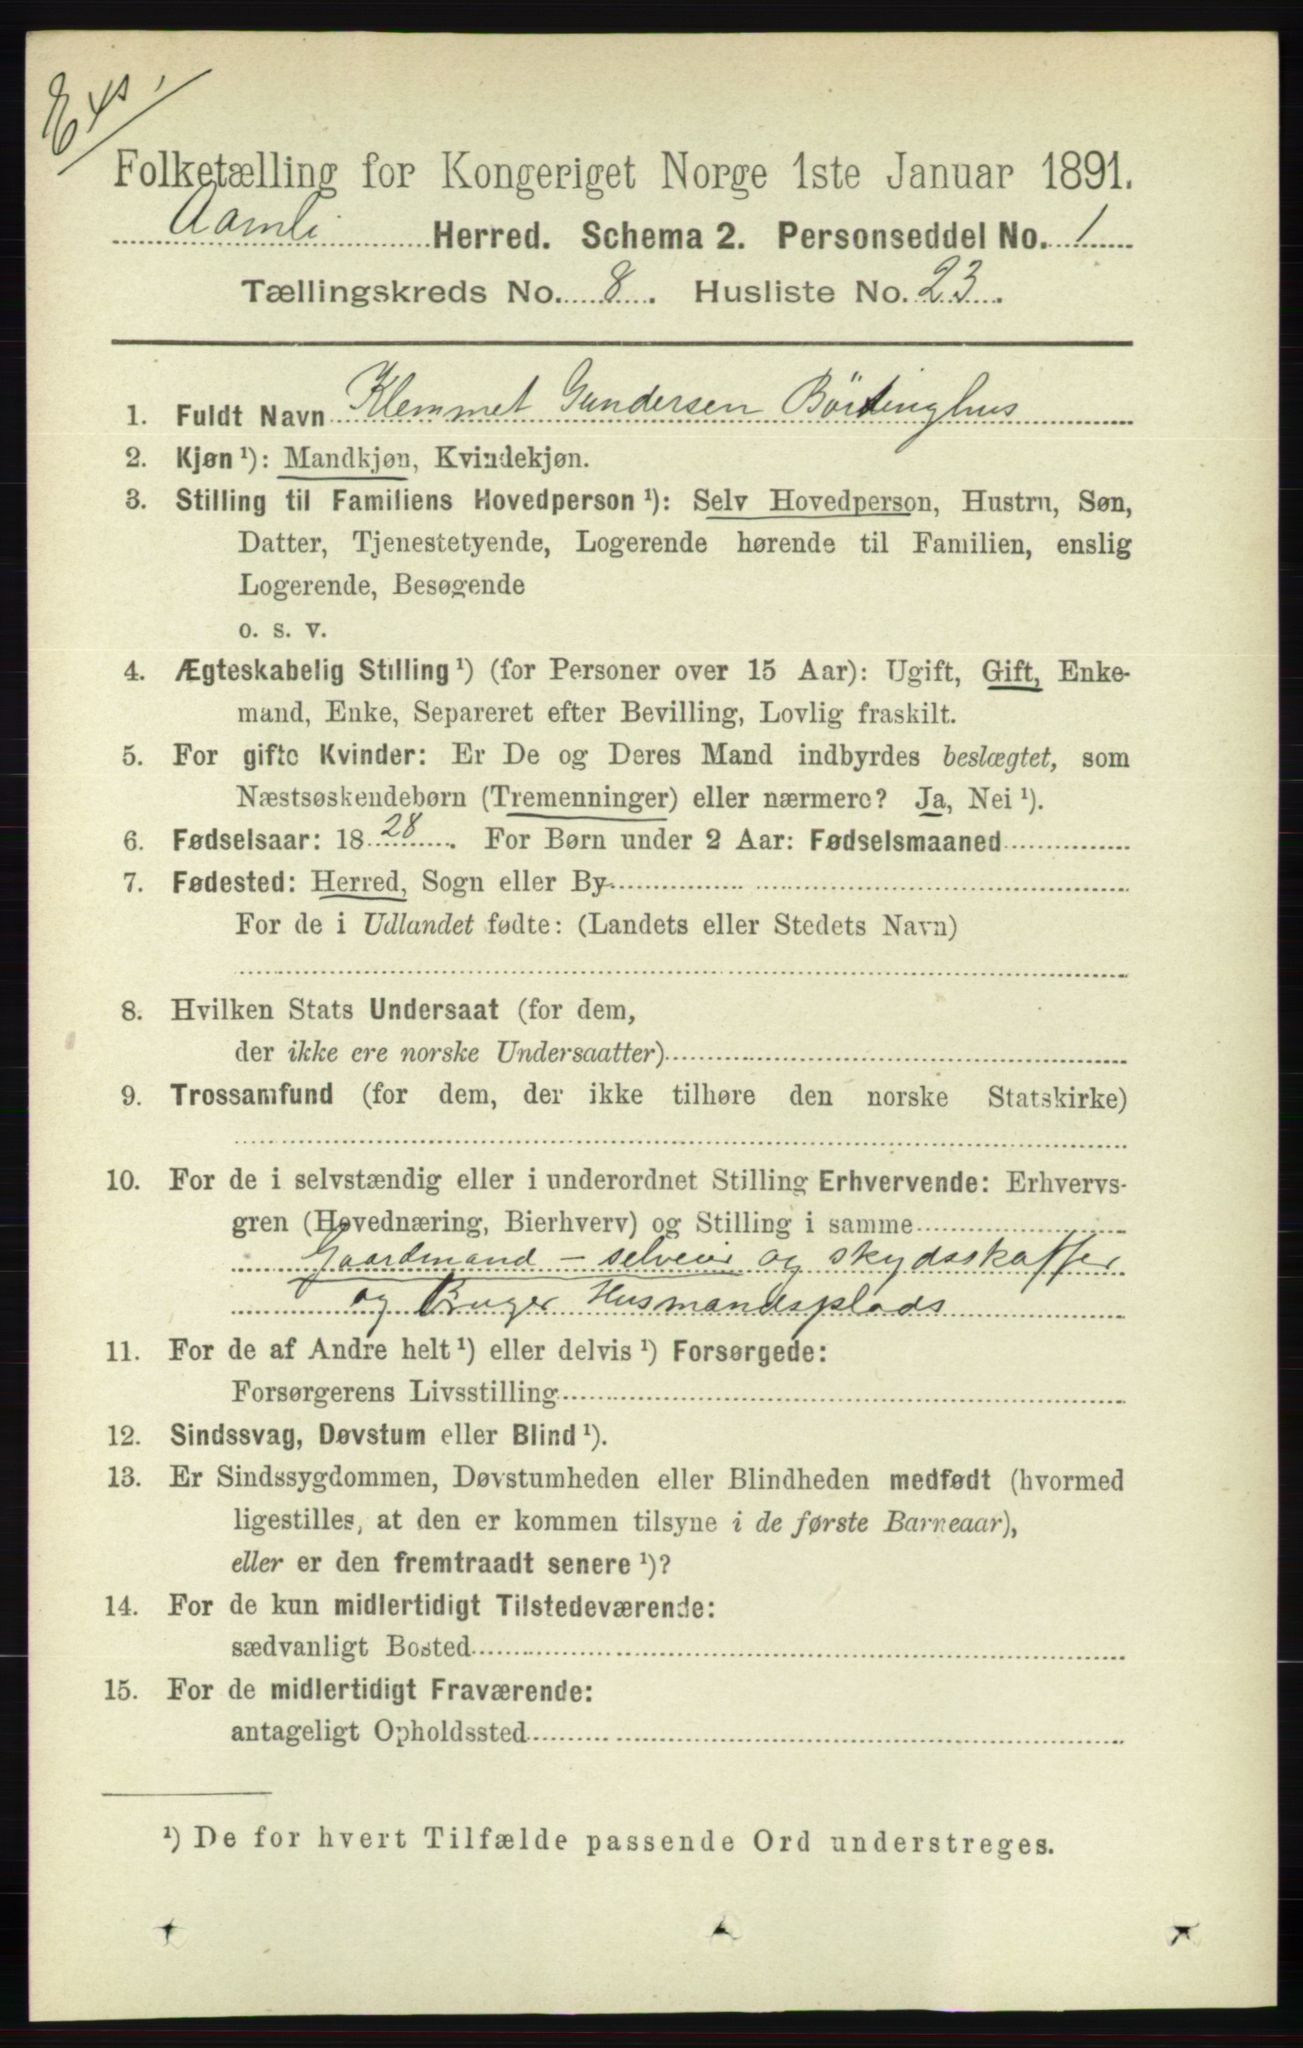 Folketælling for Kongeriget Norge 1ste Januar 1891.
Aamli Herred. Schema 2. Personseddel No. 1
Tællingskreds No. 8. Husliste No. 23.
1. Fuldt Navn Klemmet Gundersen Börtinghus
2. Kjøn ¹): Mandkjøn, Kvindekjøn.
3. Stilling til Familiens Hovedperson ¹): Selv Hovedperson, Hustru, Søn,
Datter, Tjenestetyende, Logerende hørende til Familien, enslig
Logerende, Besøgende
o. s. v.
4. Ægteskabelig Stilling ¹) (for Personer over 15 Aar): Ugift, Gift, Enke-
mand, Enke, Separeret efter Bevilling, Lovlig fraskilt.
5. For gifte Kvinder: Er De og Deres Mand indbyrdes beslægtet, som
Næstsøskendebørn (Tremenninger) eller nærmere? Ja, Nei ¹).
6. Fødselsaar: 1828. For Børn under 2 Aar: Fødselsmaaned
7. Fødested: Herred, Sogn eller By
For de i Udlandet fødte: (Landets eller Stedets Navn)
8. Hvilken Stats Undersaat (for dem,
der ikke ere norske Undersaatter)
9. Trossamfund (for dem, der ikke tilhøre den norske Statskirke)
10. For de i selvstændig eller i underordnet Stilling Erhvervende: Erhvervs-
gren (Hovednæring, Bierhverv) og Stilling i samme
Gaardmand - selveier og skydsskaffer
og Bruger Husmandsplads
11. For de af Andre helt ¹) eller delvis ¹) Forsørgede:
Forsørgerens Livsstilling
12. Sindssvag, Døvstum eller Blind ¹).
13. Er Sindssygdommen, Døvstumheden eller Blindheden medfødt (hvormed
ligestilles, at den er kommen tilsyne i de første Barneaar),
eller er den fremtraadt senere ¹)?
14. For de kun midlertidigt Tilstedeværende:
sædvanligt Bosted
15. For de midlertidigt Fraværende:
antageligt Opholdssted
¹) De for hvert Tilfælde passende Ord understreges.